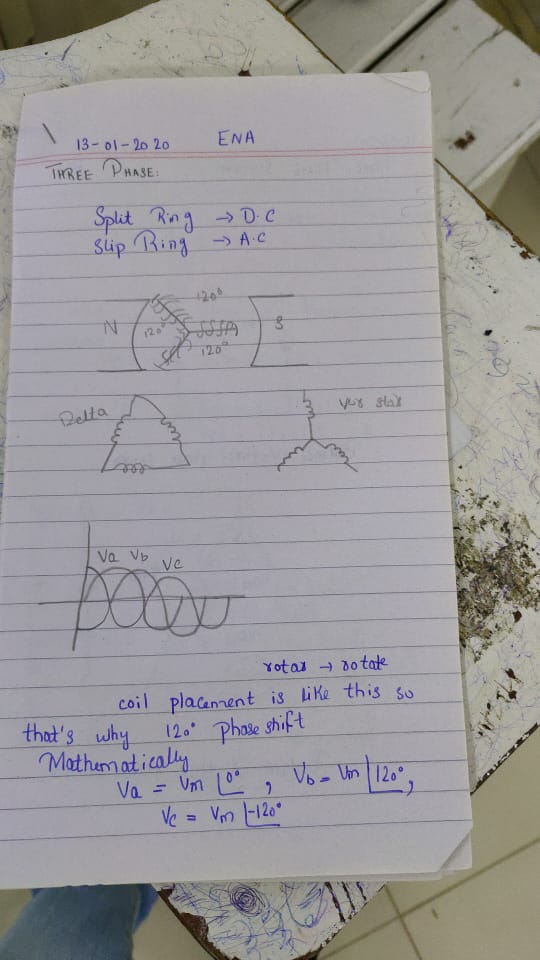 13-01-2020 ENA
THREE PHASE:
Split Ring → D.C
Slip Ring → A.C
120°
N 120° S
120°
Delta
star
Va Vb Vc
rotar → rotate
coil placement is like this so
that's why 120° Phase shift
Mathematically
Va = Vm ∠0°, Vb = Vm ∠120°,
Vc = Vm ∠-120°